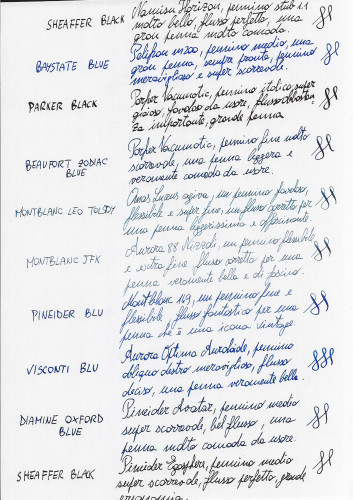 SHEAFFER BLACK
Namisu Horizon, pennino stub 1.1
molto bello, flusso perfetto, una
gran penna molto comoda.
BAYSTATE BLUE
Pelikan m200, pennino medio, una
gran penna, sempre pronta, pennino
meraviglioso e super scorrevole
PARKER BLACK
Parker Vacumatic, pennino italico super
gioioso, favoloso da usare, flusso abbastan-
za importante, grande penna
BEAUFORT ZODIAC
BLUE
Parker Vacumatic, pennino fine molto
scorrevole, una penna leggera e
veramente comoda da usare.
MONTBLANC LEO TOLSTOY
Omas Lucens ogiva, un pennino favoloso,
flessibile e super fine, un flusso corretto per
una penna leggerissima e affascinante.
MONTBLANC JFK
Aurora 88 Nizzoli, un pennino flessibile
e extra fine flusso corretto per una
penna veramente bella e di fascino.
PINEIDER BLU
Montblanc 149, un pennino fine e
flessibile flusso fantastico per una
penna che è una icona vintage.
VISCONTI BLU
Aurora Optima Auroloide, pennino
obliquo destro meraviglioso, flusso
deciso, una penna veramente bella.
DIAMINE OXFORD
BLUE
Pineider Avatar, pennino medio
super scorrevole, bel flusso, una
penna molto comoda da usare.
SHEAFFER BLACK
Pineider, pennino medio
super scorrevole, flusso perfetto, grande
ergonomia.